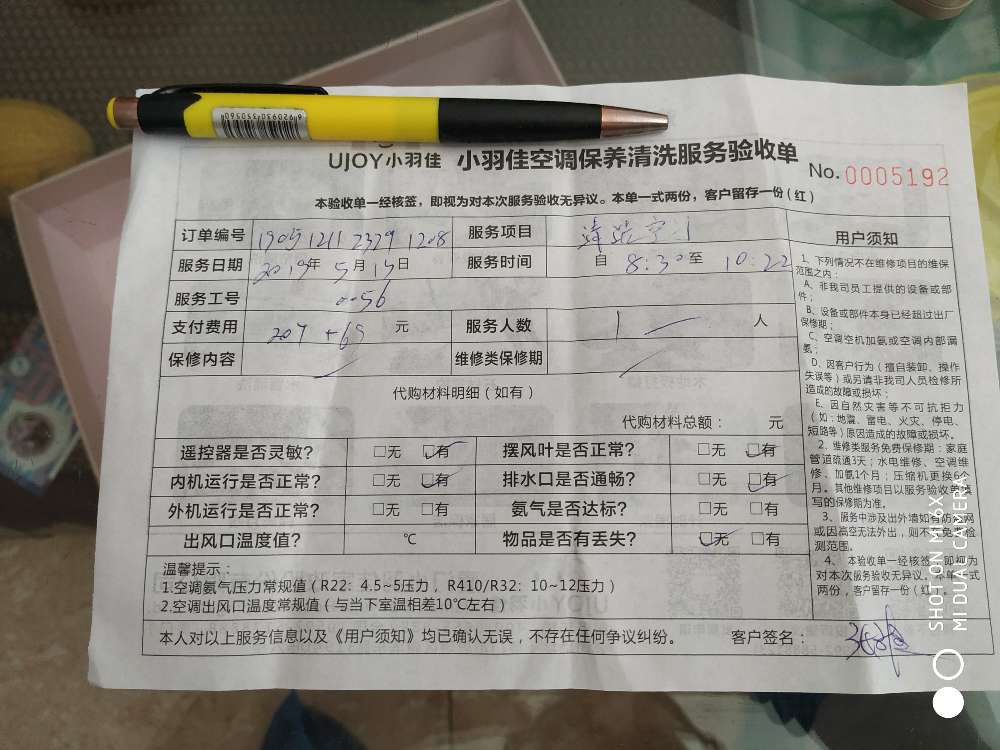 6920930350560
UJOY小羽佳 小羽佳空调保养清洗服务验收单
No. 0005192
本验收单一经核签，即视为对本次服务验收无异议。本单一式两份，客户留存一份(红)
订单编号 1905 1211 2329 1208 服务项目 清洗空调
服务日期 2019年 5月 15日 服务时间 自 8:30至 10:22
服务工号 0056
支付费用 207+69 元 服务人数 1 人
保修内容 维修类保修期
代购材料明细（如有）
代购材料总额： 元
遥控器是否灵敏? □无 □有 摆风叶是否正常? □无 □有
内机运行是否正常? □无 □有 排水口是否通畅? □无 □有
外机运行是否正常? □无 □有 氨气是否达标? □无 □有
出风口温度值? ℃ 物品是否有丢失? □无 □有
温馨提示：
1.空调氨气压力常规值（R22: 4.5~5压力，R410/R32: 10~12压力）
2.空调出风口温度常规值（与当下室温相差10℃左右）
本人对以上服务信息以及《用户须知》均已确认无误，不存在任何争议纠纷。 客户签名：
用户须知
1、下列情况不在维修项目的维保
范围之内：
A、非我司员工提供的设备或部
件；
B、设备或部件本身已经超过出厂
保修期；
C、空调空机加氨或空调内部漏
氨；
D、因客户行为（擅自装卸、操作
失误等）或另请非我司人员检修所
造成的故障或损坏；
E、因自然灾害等不可抗拒力
（如:地震、雷电、火灾、停电、
短路等）原因造成的故障或损坏。
2、维修类服务免费保修期：家庭
管道疏通3天；水电维修、空调维
修、加氨1个月；压缩机更换6个
月。其他维修项目以服务验收单填
写的保修期为准。
3、服务中涉及出外墙如有防盗网
或因高空无法外出，则不
检
测范围。
4、本验收单一经核签，即视
为对本次服务验收无异议。本单一式
两份，客户留存一份(红)。
SHOT ON MI 6X
MI DUAL CAMERA